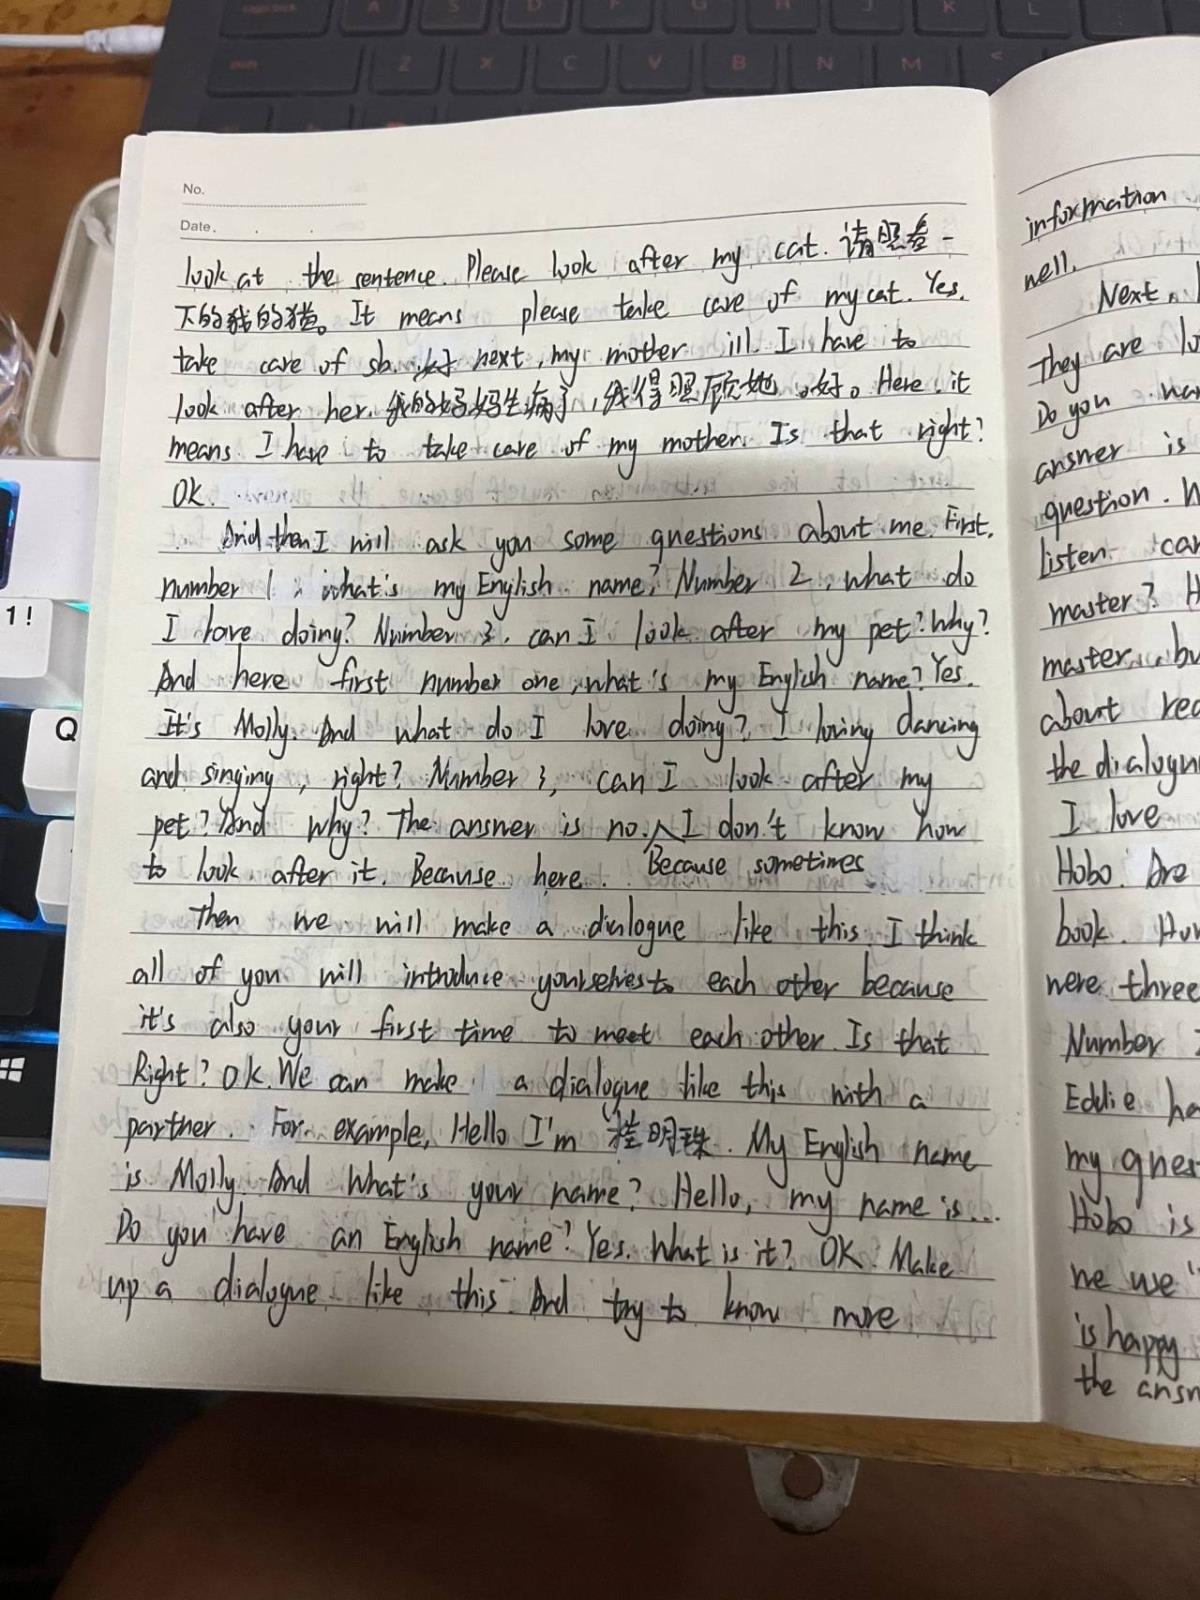 No.
Date.
look at the sentence. Please look after my cat. 请照看一
下的我的猫。It means please take care of my cat. Yes.
take care of sb. 好 next, my mother ill. I have to
look after her. 我的妈妈生病了,我得照顾她。好。Here, it
means I have to take care of my mother. Is that right?
OK.
And then I will ask you some questions about me. First,
number 1, what's my English name? Number 2, what do
I love doing? Number 3, can I look after my pet? Why?
And here first number one, what's my English name? Yes.
It's Molly. And what do I love doing? I loving dancing
and singing, right? Number 3, can I look after my
pet? And why? The answer is no. I don't know how
to look after it. Because here. Because sometimes
Then we will make a dialogue like this. I think
all of you will introduce yourselves to each other because
it's also your first time to meet each other. Is that
Right? Ok. We can make a dialogue like this with a
partner. For example, Hello I'm 明珠. My English name
is Molly. And What's your name? Hello, my name is...
Do you have an English name? Yes. What is it? OK. Make
up a dialogue like this. And try to know more
information
well.
Next,
They are
Do you
answer is
question.
listen
master?
master, bu
about
the
I love
Hobo. Are
book.
were three
Number
Eddie
my
Hobo is
we we'
is happy
the
1 !
Q
A S D F G H J K L
Z X C V B N M <